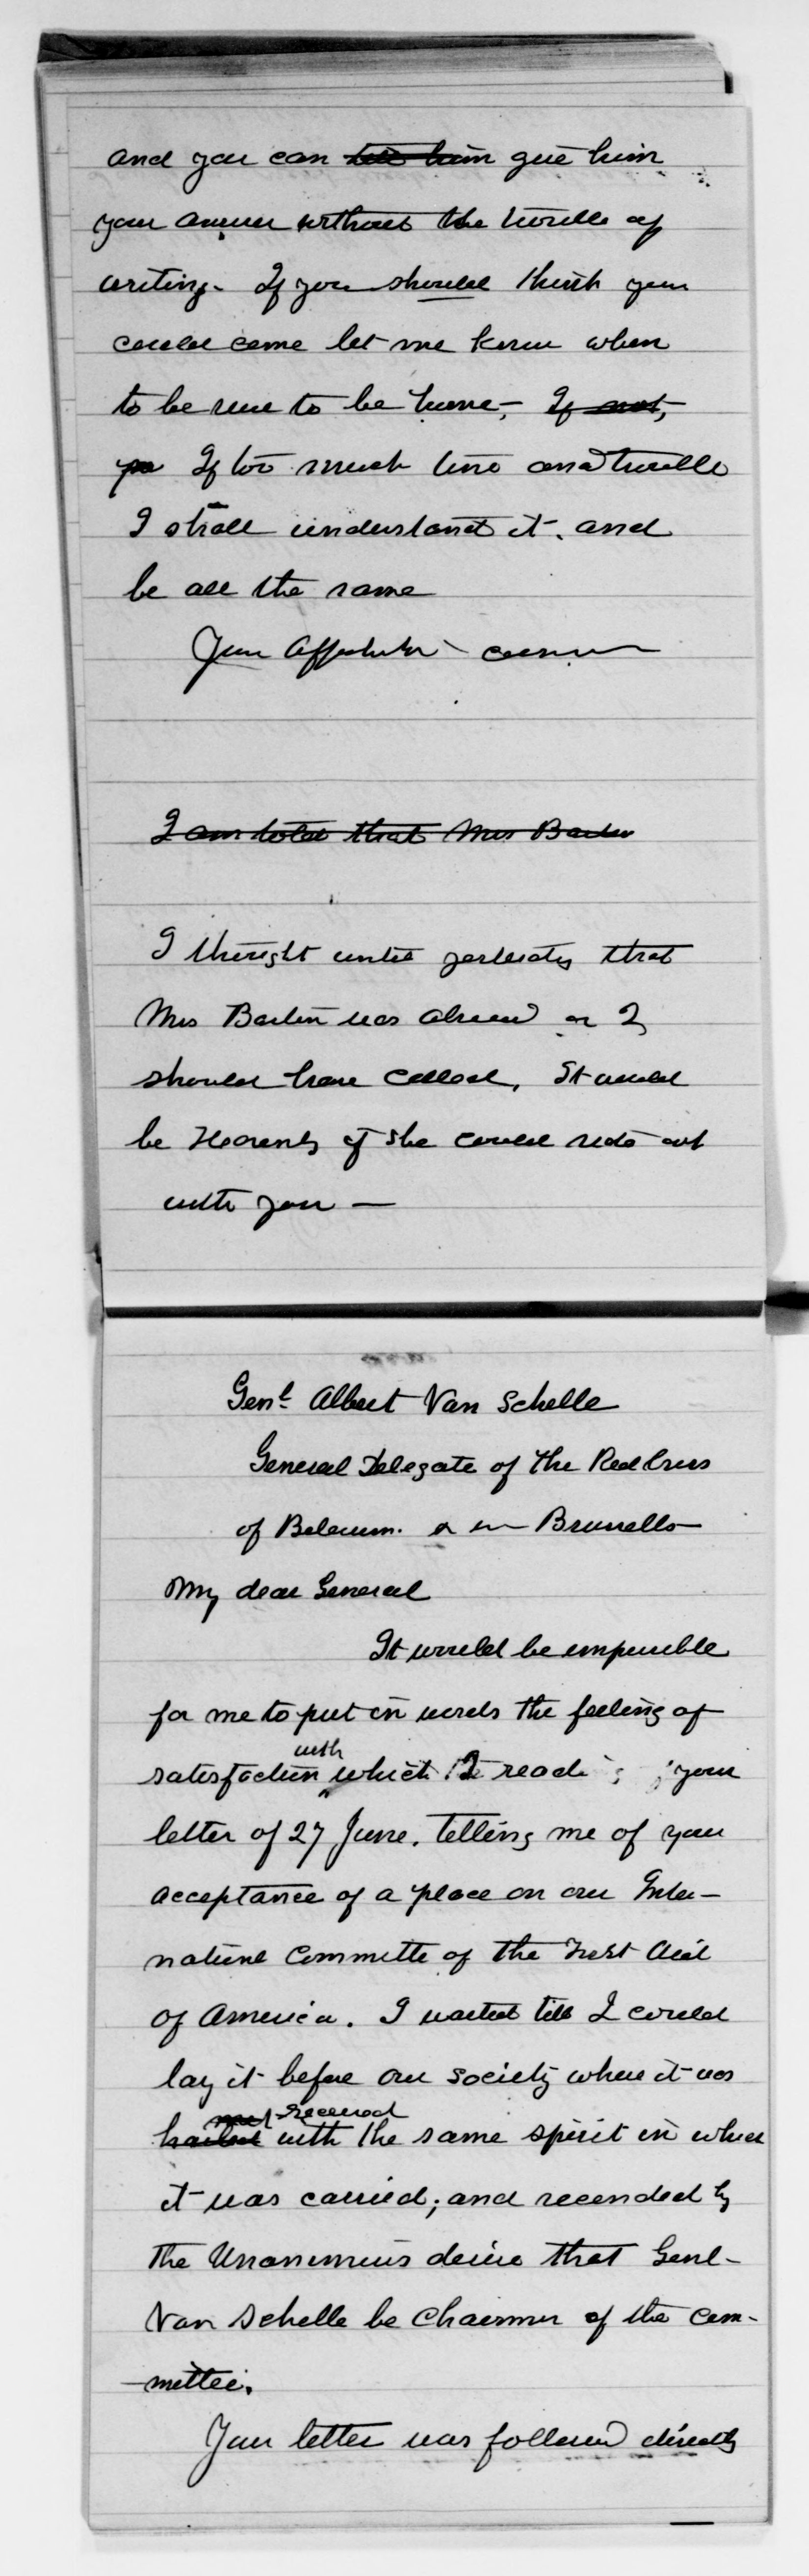 and you can tell him give him
your answer without the trouble of
writing. If you should think you
could come let me know when
to be sure to be home, If not,
you If too much time and trouble
I shall understand it, and
be all the same
Your Affectionate cousin
I am told that Mrs Barton
I thought until yesterday that
Mrs Barton was abroad or I
should have called, It would
be Heavenly if she could ride out
with you —
Genl. Albert Van Schelle
General Delegate of the Red Cross
of Belgium. Brussells
My dear General
It would be impossible
for me to put in words the feeling of
satisfaction with which I read your
letter of 27 June. telling me of your
acceptance of a place on our Inter-
national Committe of the First Aid
of America. I waited till I could
lay it before our society where it was
hailed met received with the same spirit in which
it was carried; and seconded by
the Unanimous desire that Genl-
Van Schelle be Chairman of the Com-
mittee.
Your letter was followed directly